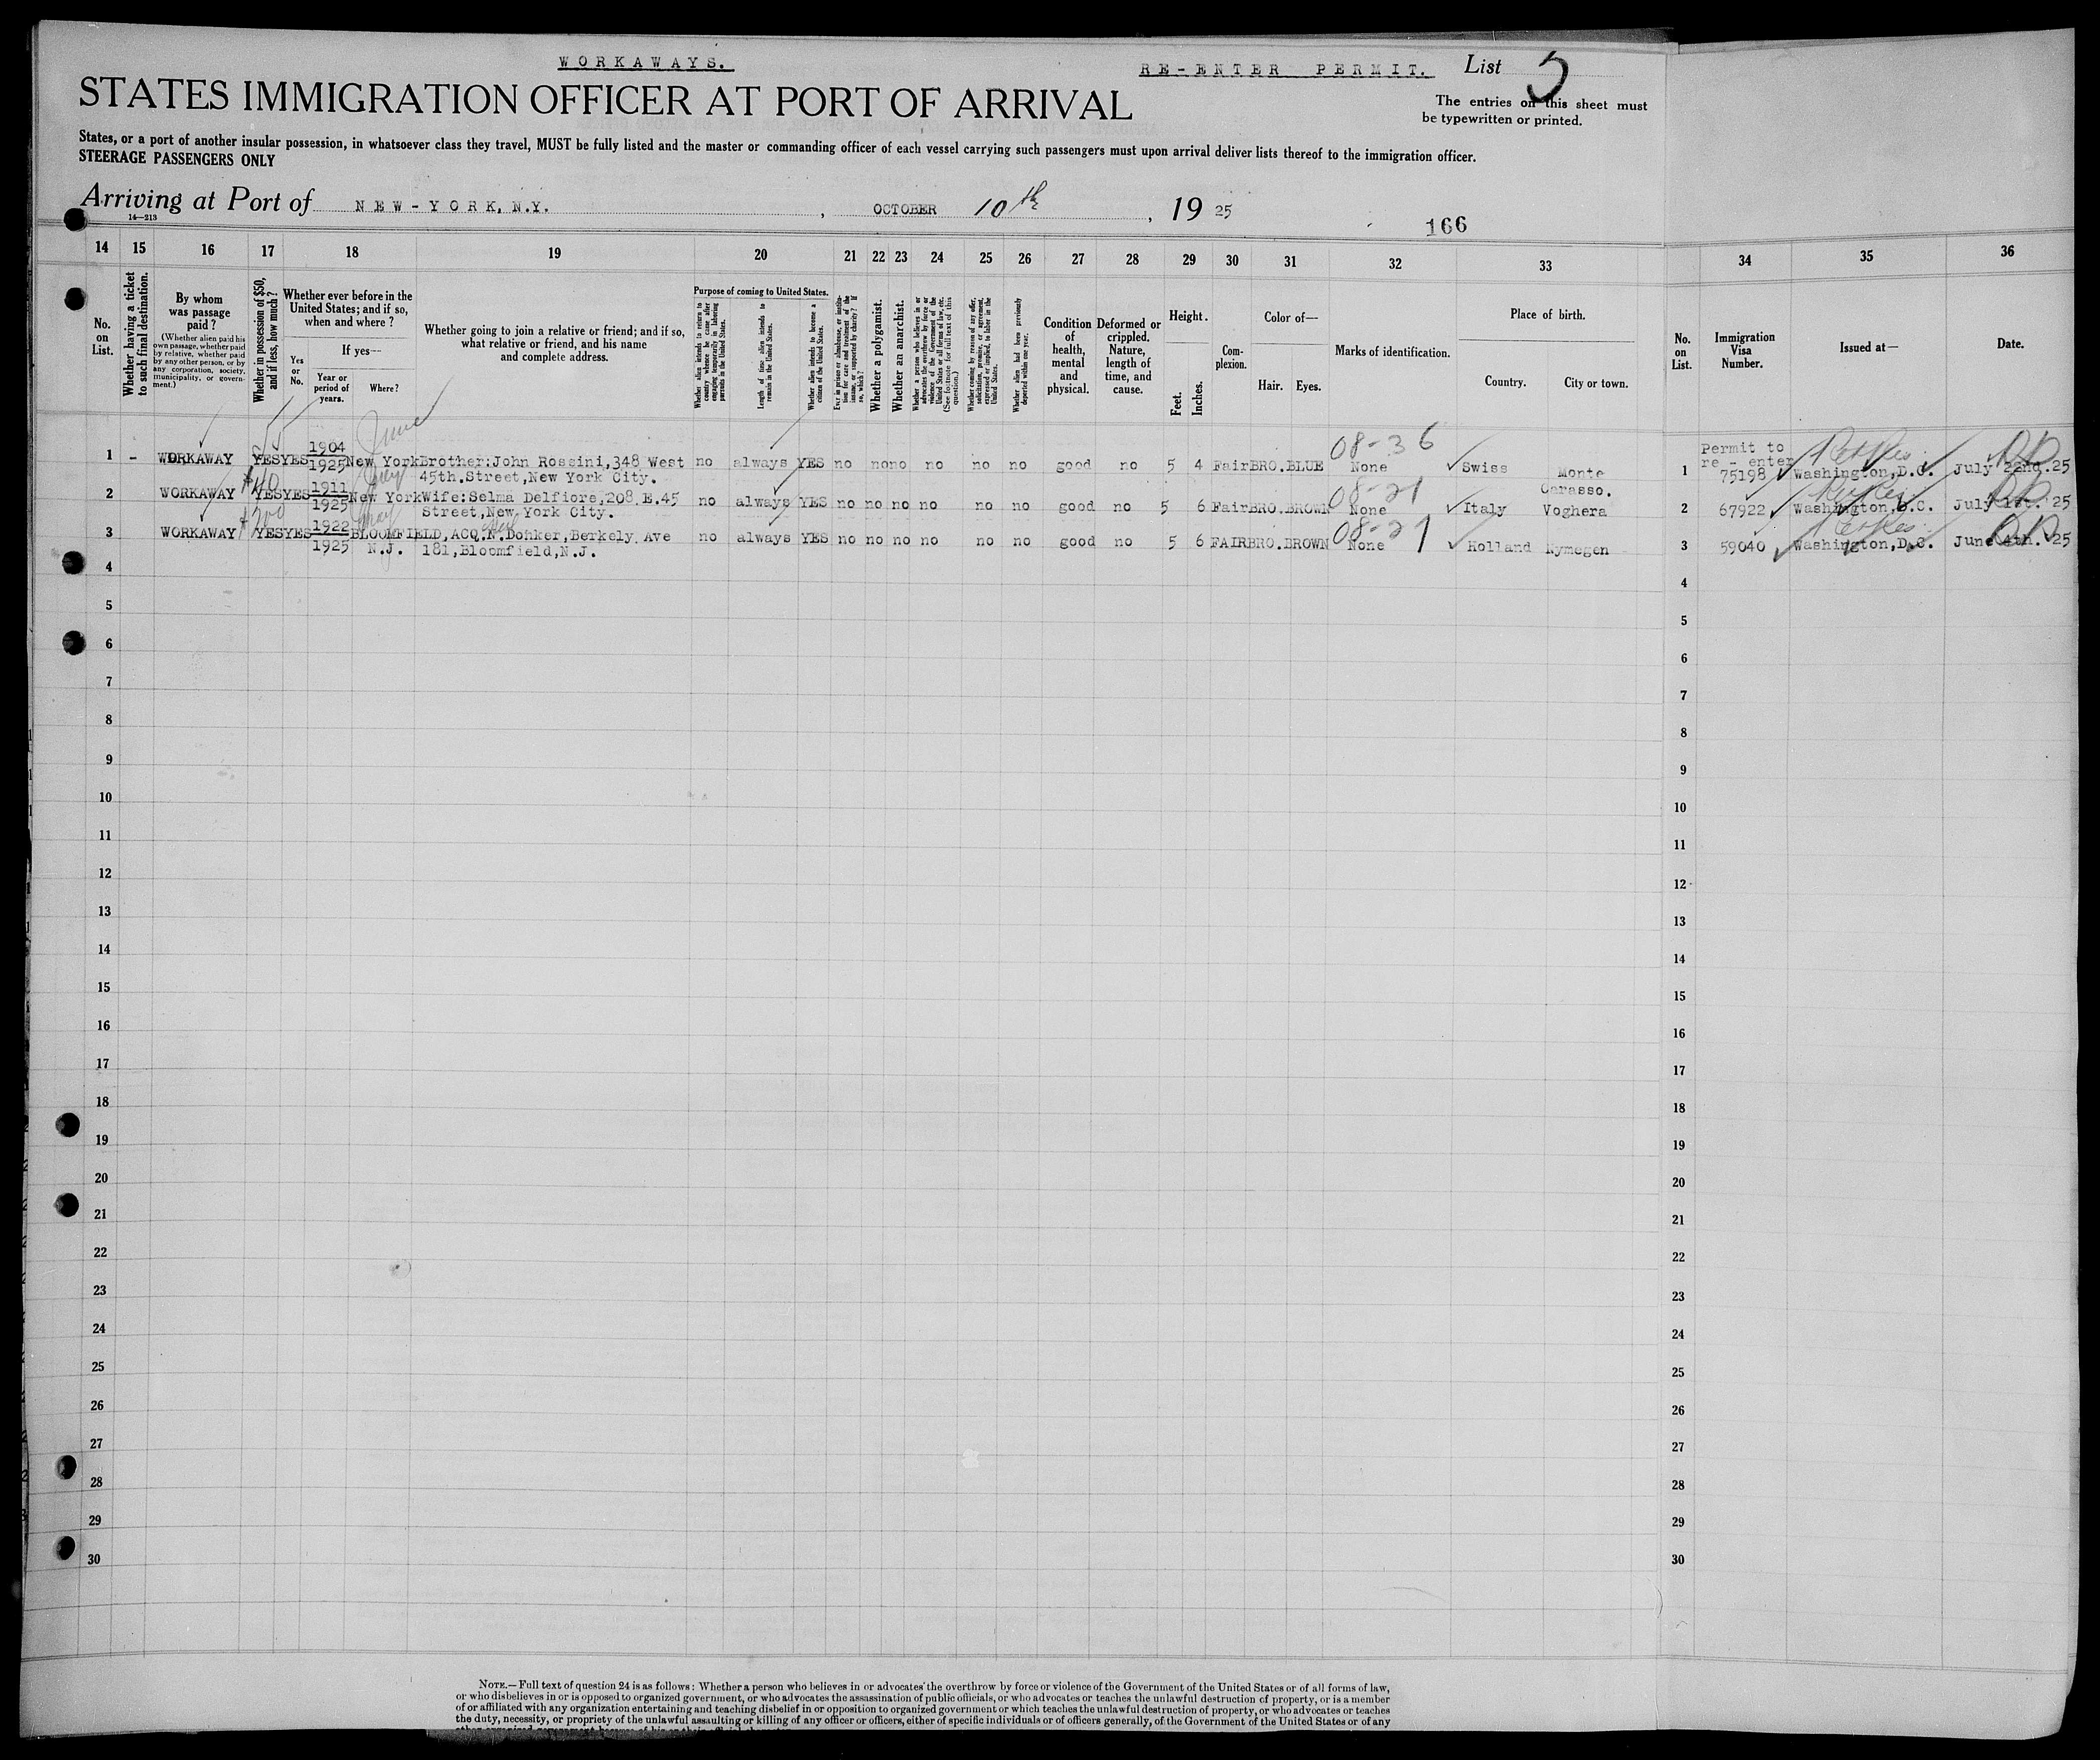 WORKAWAYS.
RE-ENTER PERMIT. List 5
STATES IMMIGRATION OFFICER AT PORT OF ARRIVAL
The entries on this sheet must
be typewritten or printed.
States, or a port of another insular possession, in whatsoever class they travel, MUST be fully listed and the master or commanding officer of each vessel carrying such passengers must upon arrival deliver lists thereof to the immigration officer.
STEERAGE PASSENGERS ONLY
Arriving at Port of NEW-YORK, N.Y. , OCTOBER 10th , 19 25
14—213
166
14 15 16 17 18 19 20 21 22 23 24 25 26 27 28 29 30 31 32 33 34 35 36
No. on List.
Whether having a ticket to such final destination.
By whom was passage paid?
(Whether alien paid his own passage, whether paid by relative, whether paid by any other person, or by any corporation, society, municipality, or government.)
Whether in possession of $50, and if less, how much?
Whether ever before in the United States; and if so, when and where?
Yes or No.
If yes—
Year or period of years.
Where?
Whether going to join a relative or friend; and if so, what relative or friend, and his name and complete address.
Purpose of coming to United States.
Whether alien intends to return to country whence he came after engaging temporarily in laboring pursuits in the United States.
Length of time alien intends to remain in the United States.
Whether alien intends to become a citizen of the United States.
Ever in prison or almshouse, or institution for care and treatment of the insane, or supported by charity? If so, which?
Whether a polygamist.
Whether an anarchist.
Whether a person who believes in or advocates the overthrow by force or violence of the Government of the United States or all forms of law, etc. (See footnote for full text of this question.)
Whether coming by reason of any offer, solicitation, promise, or agreement, expressed or implied, to labor in the United States.
Whether alien had been previously deported within one year.
Condition of health, mental and physical.
Deformed or crippled. Nature, length of time, and cause.
Height.
Feet. Inches.
Complexion.
Color of—
Hair. Eyes.
Marks of identification.
Place of birth.
Country. City or town.
No. on List.
Immigration Visa Number.
Issued at—
Date.
June
08-36
Permit to
re - enter
1 - WORKAWAY YES YES 1904 1925 New York Brother:John Rossini,348 West no always YES no no no no no no good no 5 4 Fair BRO. BLUE None Swiss Monte 1 75198 Washington,D.C. July 22nd.25
45th.Street,New York City. Carasso.
$40 08-21
2 WORKAWAY YES YES 1911 1925 New York Wife:Selma Delfiore,208 E.45 no always YES no no no no no no good no 5 6 Fair BRO. BROWN None Italy Voghera 2 67922 Washington,D.C. July 1st. 25
Street,New York City.
$200 May 08-21
3 WORKAWAY YES YES 1922 BLOOMFIELD,ACQ.N.Dohker,Berkely Ave no always YES no no no no no no good no 5 6 FAIR BRO. BROWN None Holland Nymegen 3 59040 Washington,D.C. June 4th. 25
1925 N.J. 181,Bloomfield,N.J.
4 4
5 5
6 6
7 7
8 8
9 9
10 10
11 11
12 12
13 13
14 14
15 15
16 16
17 17
18 18
19 19
20 20
21 21
22 22
23 23
24 24
25 25
26 26
27 27
28 28
29 29
30 30
NOTE.—Full text of question 24 is as follows: Whether a person who believes in or advocates the overthrow by force or violence of the Government of the United States or of all forms of law,
or who disbelieves in or is opposed to organized government, or who advocates the assassination of public officials, or who advocates or teaches the unlawful destruction of property, or is a member
of or affiliated with any organization entertaining and teaching disbelief in or opposition to organized government or which teaches the unlawful destruction of property, or who advocates or teaches
the duty, necessity, or propriety of the unlawful assaulting or killing of any officer or officers, either of specific individuals or of officers generally, of the Government of the United States or of any